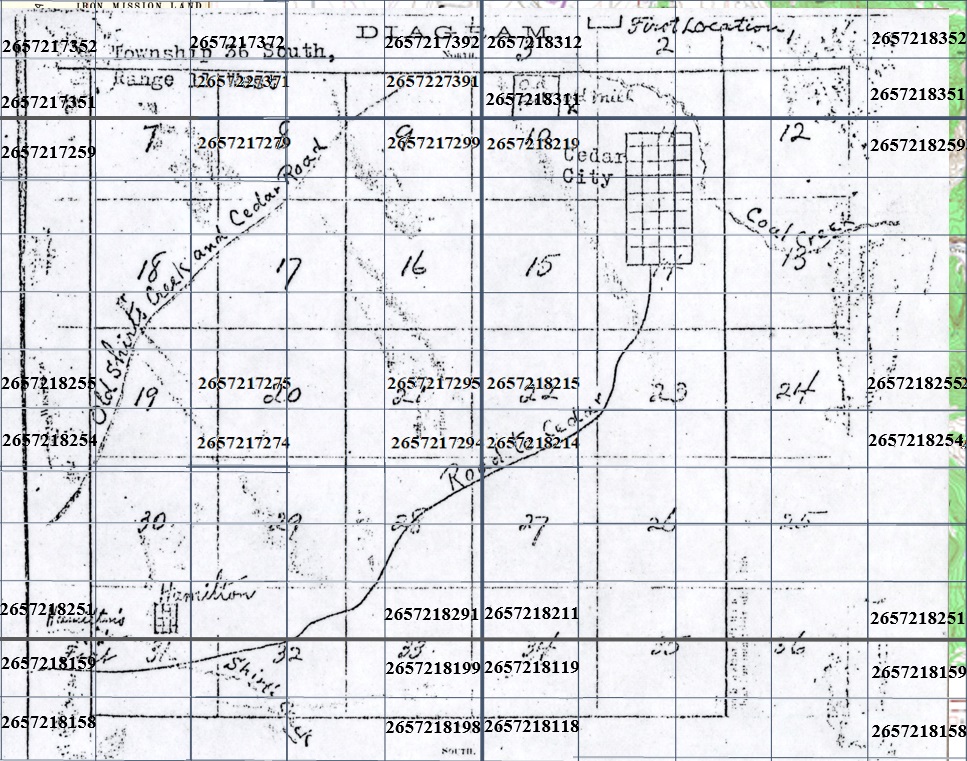 IRON MISSION LAND
DIAGRAM
First Location
2657217352
Township 36 South,
2657217372
2657217392
2657218312
3
2
1
2657218352
NORTH.
Range 12 West
2657227371
2657227391
2657217351
2657218311
2657218351
7
8
9
10
11
12
2657217259
2657217279
2657217299
2657218219
2657218259
Cedar
City
Old Shirts Creek and Cedar Road
Coal Creek
18
17
16
15
14
13
2657218255
2657217275
2657217295
2657218215
2657218252
19
20
21
22
23
24
2657218254
2657217274
2657217294
2657218214
2657218254
Road to Cedar
30
29
28
27
26
25
Hamilton
2657218251
2657218291
2657218211
2657218251
Hamilton's
Fort
31
32
33
34
35
36
2657218159
2657218199
2657218119
2657218159
Shirts
Creek
2657218158
2657218198
2657218118
2657218158
SOUTH.